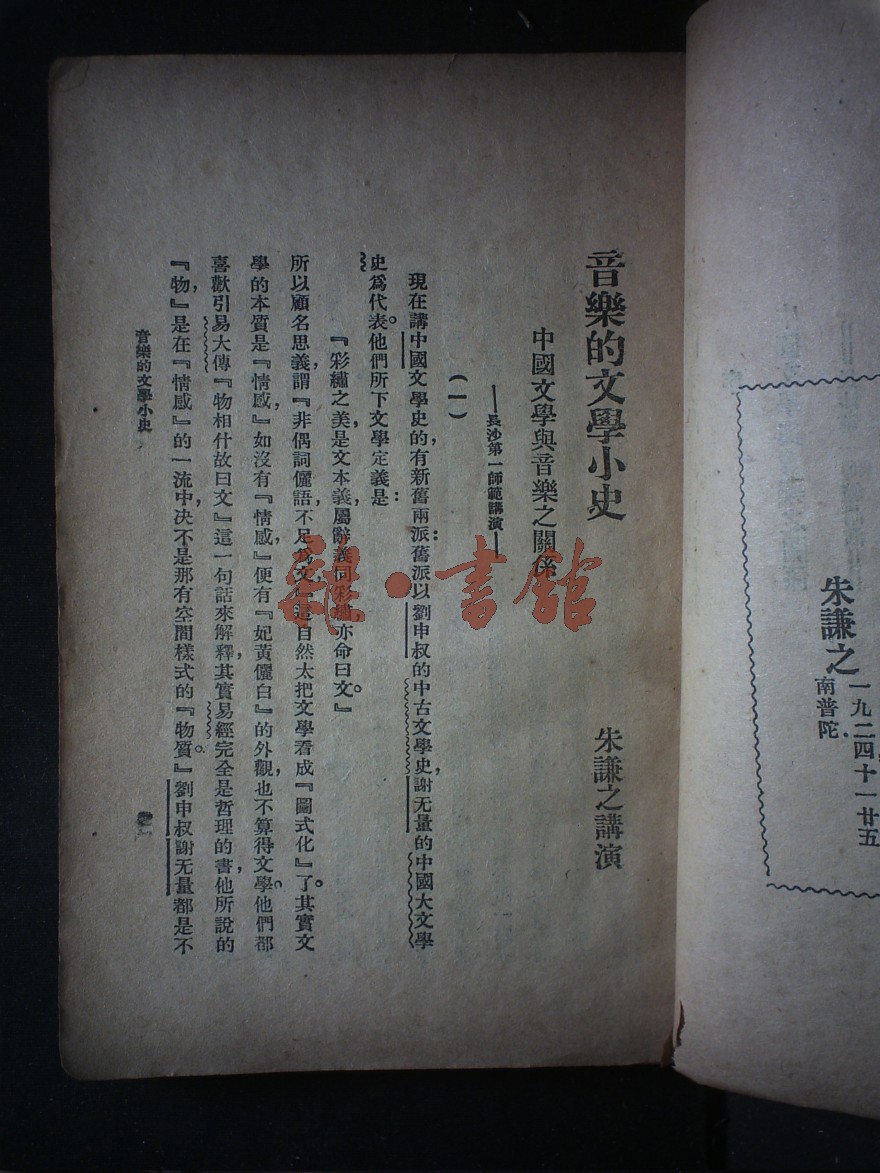 朱謙之
一九二四、十一、廿五
南普陀、
音樂的文學小史
朱謙之講演
中國文學與音樂之關係
——長沙第一師範講演——
(一)
現在講中國文學史的,有新舊兩派:舊派以劉申叔的中古文學史,謝无量的中國大文學
史爲代表。他們所下文學定義是:
『彩繡之美,是文本義,屬辭義同彩繡,亦命曰文。』
所以顧名思義,謂『非偶詞儷語,不足爲文』這自然太把文學看成『圖式化』了。其實文
學的本質是『情感,』如沒有『情感,』便有『妃黃儷白』的外觀,也不算得文學。他們都
喜歡引易大傳『物相什故曰文』這一句話來解釋,其實易經完全是哲理的書,他所說的
『物,』是在『情感』的一流中,决不是那有空間樣式的『物質。』劉申叔謝无量都是不
音樂的文學小史
雜·書館